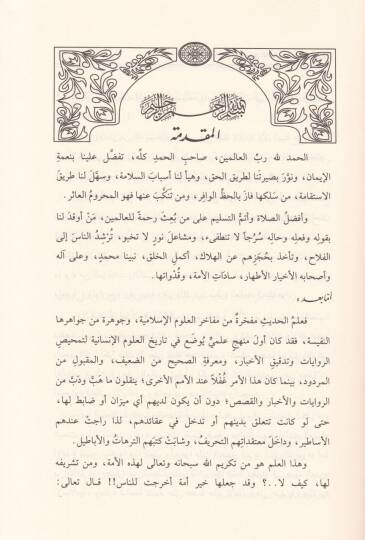 بسم الله الرحمن الرحيم
المقدمة
الحمد لله ربّ العالمين، صاحبِ الحمدِ كلِّه، تفضَّل علينا بنعمةِ
الإيمان، ونوّرَ بصيرتَنا لطريق الحق، وهيأ لنا أسبابَ السلامة، وسهَّل لنا طريقَ
الاستقامة، من سَلكها فازَ بالحظِّ الوافِر، ومن تنكَّبَ عنها فهو المحرومُ العاثر.
وأفضلُ الصلاة وأتمُّ التسليم على من بُعِثَ رحمةً للعالمين، مَنْ أوقدَ لنا
بقوله وفعلِه وحالِه سُرُجاً لا تنطفىء، ومشاعلَ نورٍ لا تخبو، تُرْشِدُ الناسَ إلى
الفلاح، وتأخذ بحُجَزِهم عن الهلاك، أكملِ الخلق، نبينا محمدٍ، وعلى آله
وأصحابه الأخيار الأطهار، ساداتِ الأمة، وقُدُواتها.
أمّا بعد،
فعلمُ الحديثِ مفخرةٌ من مفاخر العلوم الإسلامية، وجوهرة من جواهرها
النفيسة، فقد كان أولَ منهجٍ علميٍّ يُوضَع في تاريخ العلوم الإنسانية لتمحيصِ
الروايات وتدقيقِ الأخبار، ومعرفةِ الصحيح من الضعيف، والمقبولِ من
المردود، بينما كان هذا الأمر غُفْلاً عند الأمم الأخرى؛ ينقلون ما هَبَّ ودَبَّ من
الروايات والأخبار والقصص؛ دون أن يكون لديهم أي ميزان أو ضابط لها،
حتى لو كانت تتعلق بدينهم أو تدخل في عقائدهم، لذا راجتْ عندهم
الأساطير، وداخَلَ معتقداتِهم التحريفُ، وشابَتْ كتبَهم الترهاتُ والأباطيل.
وهذا العلم هو من تكريم الله سبحانه وتعالى لهذه الأمة، ومن تشريفه
لها، كيف لا..؟ وقد جعلها خير أمة أخرجت للناس!! قال تعالى: